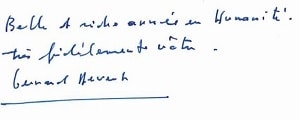 Belle et riche année en Humanité.
très fidèlement vôtre.